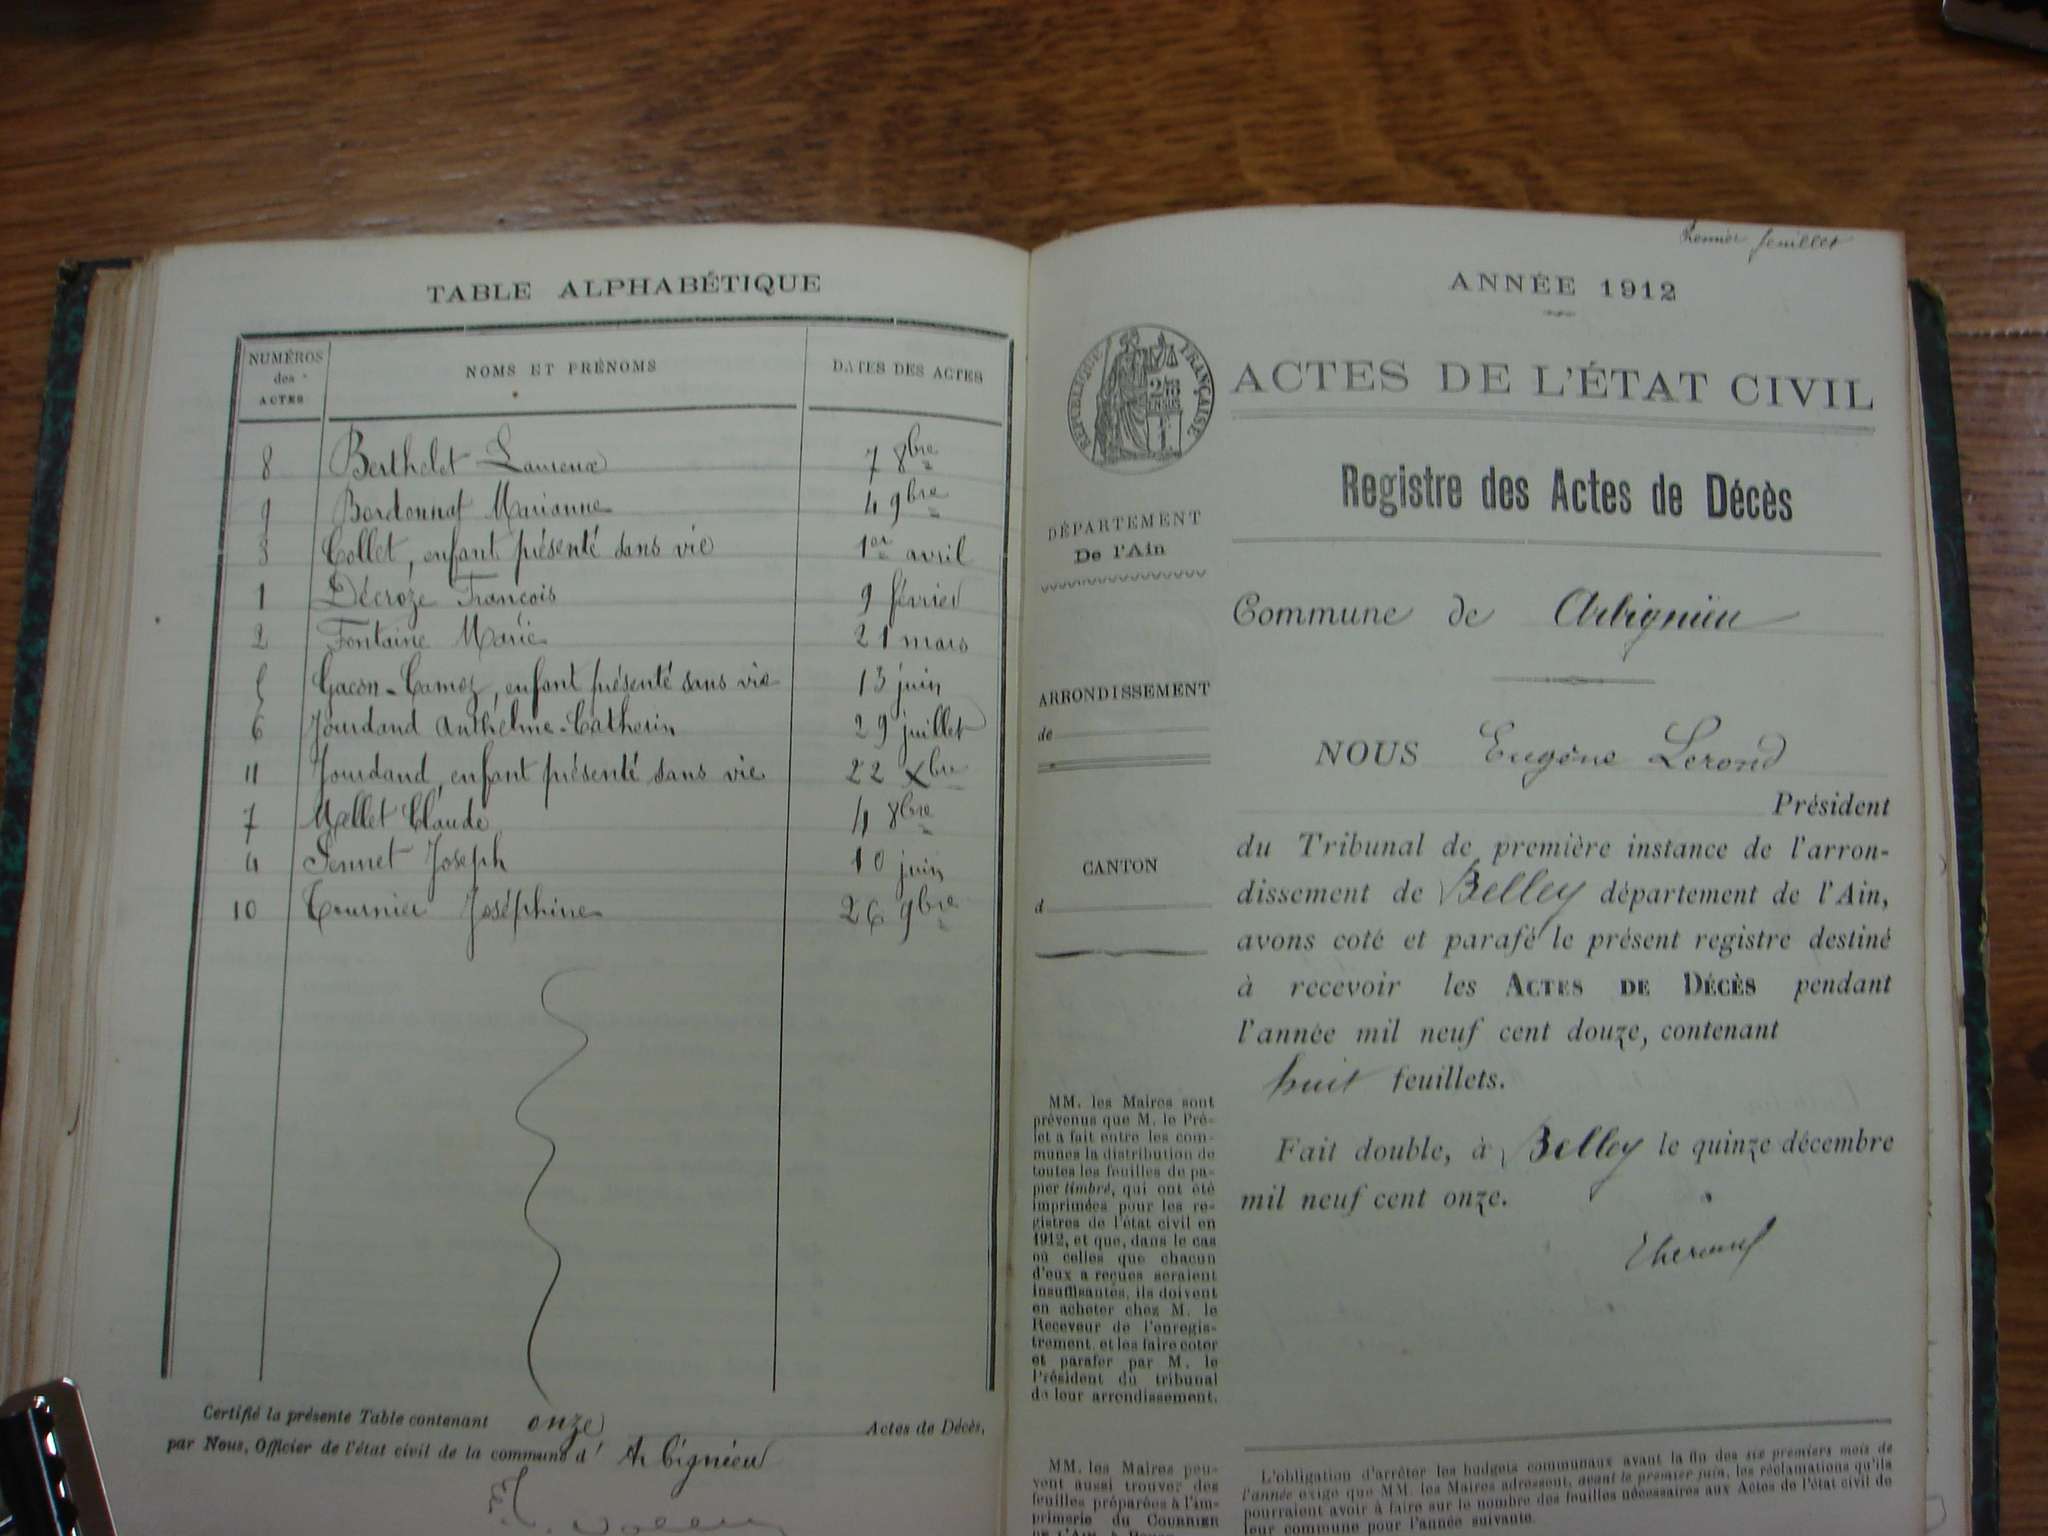 TABLE ALPHABÉTIQUE
NUMÉROS des ACTES NOMS ET PRÉNOMS DATES DES ACTES
8 Berthelet 7 8bre
9 Bordonnat Marianne 4 9bre
3 Collet, enfant présenté sans vie 1er avril
1 Décroze François 9 février
2 Fontaine Marie 21 mars
5 Gacon-Camoz, enfant présenté sans vie 13 juin
6 Jourdand Anthelme-Catherin 29 juillet
11 Jourdand, enfant présenté sans vie 22 Xbre
7 Mellet Claude 4 8bre
4 Joseph 10 juin
10 Tournier Joséphine 26 9bre
Certifié la présente Table contenant onze Actes de Décès,
par Nous, Officier de l'état civil de la commune d' Arbignieu
Premier feuillet
ANNÉE 1912
RÉPUBLIQUE FRANÇAISE
ACTES DE L'ÉTAT CIVIL
Registre des Actes de Décès
DÉPARTEMENT
De l'Ain
Commune de Arbignieu
ARRONDISSEMENT
de
CANTON
d
NOUS Eugène Lerond
Président
du Tribunal de première instance de l'arron-
dissement de Belley département de l'Ain,
avons coté et parafé le présent registre destiné
à recevoir les ACTES DE DÉCÈS pendant
l'année mil neuf cent douze, contenant
huit feuillets.
Fait double, à Belley le quinze décembre
mil neuf cent onze.
MM. les Maires sont
prévenus que M. le Pré-
fet a fait entre les com-
munes la distribution de
toutes les feuilles de pa-
pier timbré, qui ont été
imprimées pour les re-
gistres de l'état civil en
1912, et que, dans le cas
où celles que chacun
d'eux a reçues seraient
insuffisantes, ils doivent
en acheter chez M. le
Receveur de l'enregis-
trement, et les faire coter
et parafer par M. le
Président du tribunal
de leur arrondissement.
MM. les Maires peu-
vent aussi trouver des
feuilles préparées à l'im-
primerie du COURRIER
DE L'AIN, à
L'obligation d'arrêter les budgets communaux avant la fin des six premiers mois de
l'année exige que MM. les Maires adressent, avant le premier juin, les réclamations qu'ils
pourraient avoir à faire sur le nombre des feuilles nécessaires aux Actes de l'état civil de
leur commune pour l'année suivante.